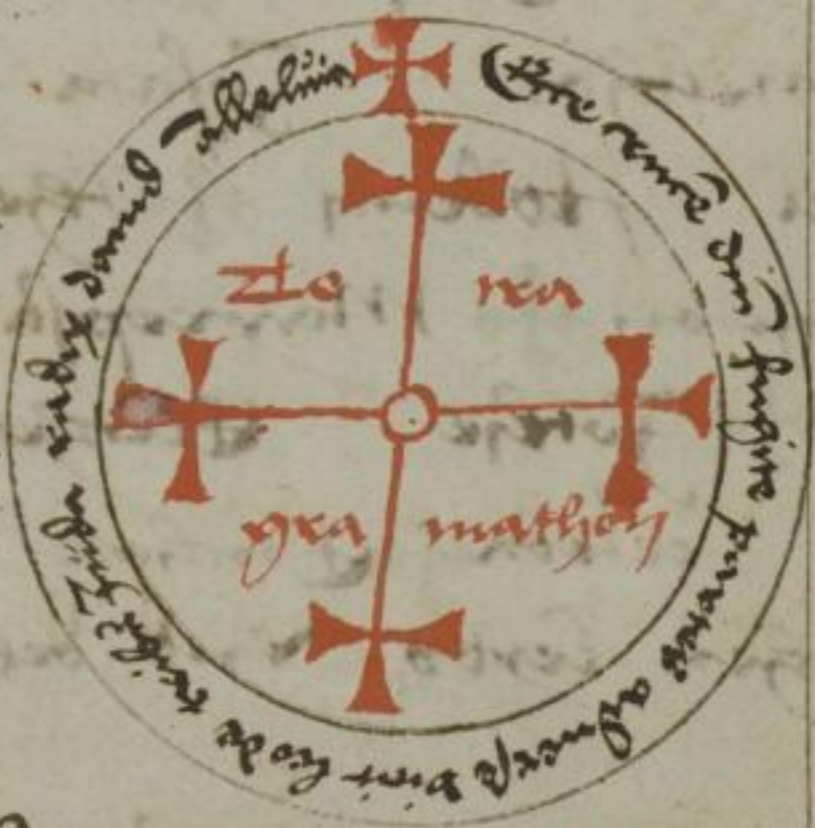 Ecce crucē dm̄ fugite partes aduerse vicit leo de tribu Juda radix dauid alleluia
Te tra
gra mathon